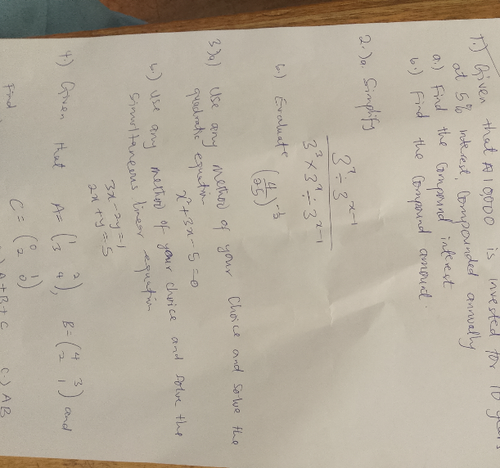 1) Given that ₦10,000 is invested for 10 years
at 5% interest, compounded annually
a.) Find the compound interest
b.) Find the compound amount.
2.) a. Simplify
3⁹ ÷ 3ˣ⁻¹
3³ × 3⁹ ÷ 3ˣ⁻¹
b.) Evaluate
3)a) Use any method of your choice and solve the
quadratic equation
x² + 3x - 5 = 0
b) Use any method of your choice and solve the
simultaneous linear equation
3x - 2y = 1
2x + y = 5
4) Given that A = (1 2
3 4), B = (4 3
2 1) and
C = (0 1
2 0)
Find
A+B+C c.) AB